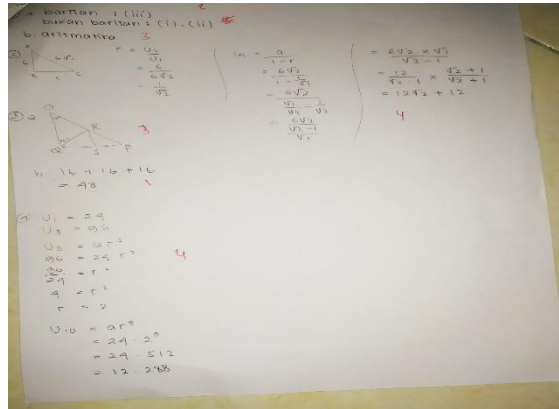 barisan : (iii)
2
bukan barisan : (i), (ii)
b. aritmatika 3
A
6 6√2
B C
r = U2
U1
= 6
6√2
= 1
√2
Sn = a
1 - r
= 6√2
1 - 1
√2
= 6√2
√2 - 1
√2 √2
= 6√2
√2 - 1
√2
= 6√2 × √2
√2 - 1
= 12 × √2 + 1
√2 - 1 √2 + 1
= 12√2 + 12
4
a. R
Q S P
3
b. 16 + 16 + 16
= 48
1
U1 = 24
U3 = 96
U3 = ar²
96 = 24 r²
96 = r²
24
4 = r²
r = 2
4
U10 = ar⁹
= 24 . 2⁹
= 24 . 512
= 12 . 288